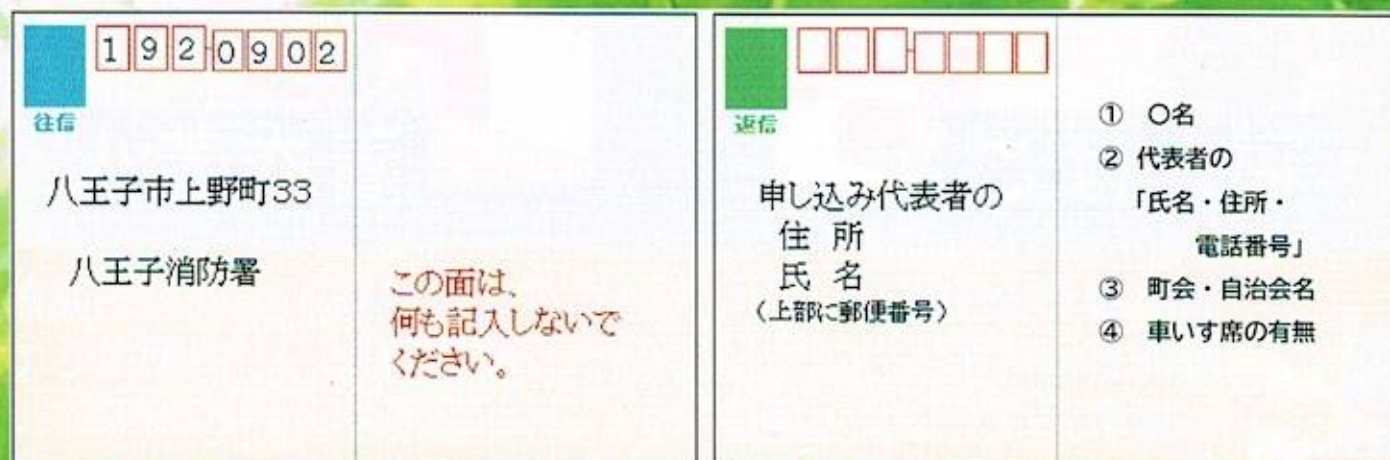 1920902
往信
八王子市上野町33
八王子消防署
この面は、
何も記入しないで
ください。
返信
申し込み代表者の
住 所
氏 名
(上部に郵便番号)
① ○名
② 代表者の
「氏名・住所・
電話番号」
③ 町会・自治会名
④ 車いす席の有無